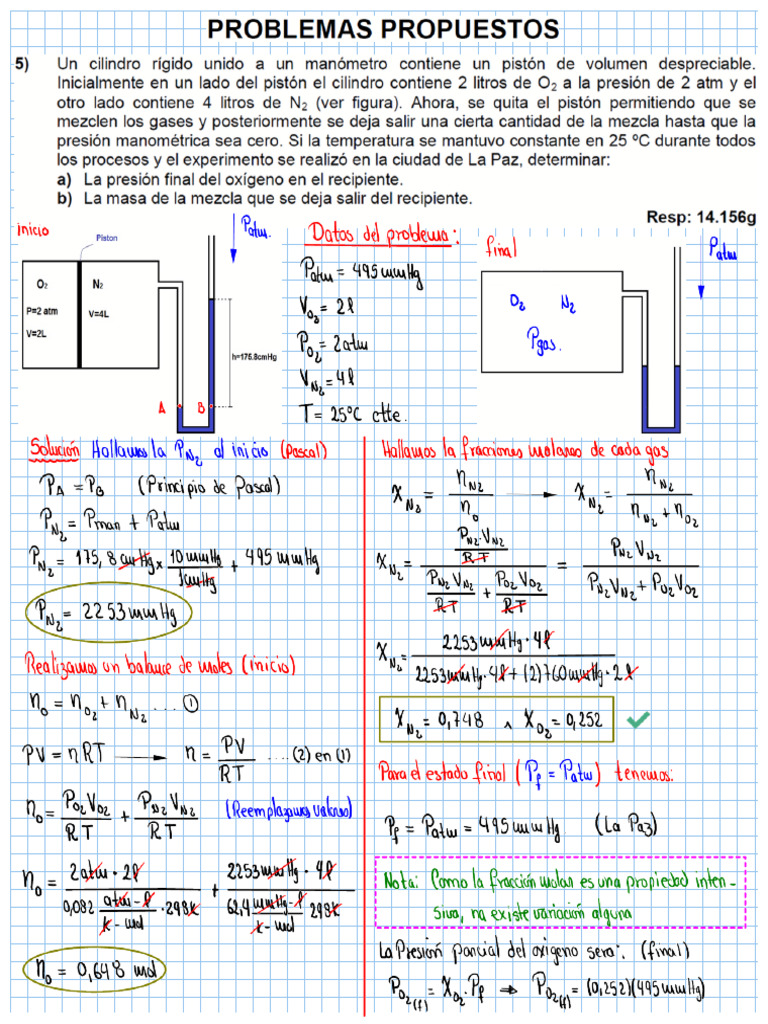 PROBLEMAS PROPUESTOS
5) Un cilindro rígido unido a un manómetro contiene un pistón de volumen despreciable.
Inicialmente en un lado del pistón el cilindro contiene 2 litros de O₂ a la presión de 2 atm y el
otro lado contiene 4 litros de N₂ (ver figura). Ahora, se quita el pistón permitiendo que se
mezclen los gases y posteriormente se deja salir una cierta cantidad de la mezcla hasta que la
presión manométrica sea cero. Si la temperatura se mantuvo constante en 25 ºC durante todos
los procesos y el experimento se realizó en la ciudad de La Paz, determinar:
a) La presión final del oxígeno en el recipiente.
b) La masa de la mezcla que se deja salir del recipiente.
Resp: 14.156g
inicio
Piston
Patm.
O₂
N₂
P=2 atm
V=4L
V=2L
h=175.8cmHg
A B
Datos del problema:
Patm = 495 mmHg
V_O₂ = 2l
P_O₂ = 2atm
V_N₂ = 4l
T = 25°C ctte.
final
Patm
O₂ N₂
Pgas.
Solución Hallamos la P_N₂ al inicio (Pascal)
P_A = P_B (Principio de Pascal)
P_N₂ = Pman + Patm
P_N₂ = 175,8 cmHg x 10 mmHg / 1cmHg + 495 mmHg
P_N₂ = 2253 mmHg
Realizamos un balance de moles (inicio)
n₀ = n_O₂ + n_N₂ .... ①
PV = nRT → n = PV / RT .... (2) en (1)
n₀ = P_O₂ V_O₂ / RT + P_N₂ V_N₂ / RT (Reemplazamos valores)
n₀ = 2atm · 2l / 0,082 atm-l / k-mol · 298k + 2253 mmHg · 4l / 62,4 mmHg-l / k-mol 298k
n₀ = 0,648 mol
Hallamos la fracciones molares de cada gas
X_N₂ = n_N₂ / n₀ → X_N₂ = n_N₂ / n_N₂ + n_O₂
X_N₂ = P_N₂ V_N₂ / RT / P_N₂ V_N₂ / RT + P_O₂ V_O₂ / RT = P_N₂ V_N₂ / P_N₂ V_N₂ + P_O₂ V_O₂
X_N₂ = 2253 mmHg · 4l / 2253 mmHg · 4l + (2)760 mmHg · 2l
X_N₂ = 0,748 ∧ X_O₂ = 0,252 ✓
Para el estado final (P_f = Patm) tenemos:
P_f = Patm = 495 mmHg (La Paz)
Nota: Como la fracción molar es una propiedad inten-
siva, no existe variación alguna
La Presión parcial del oxigeno sera: (final)
P_O₂(f) = X_O₂ · P_f ⇒ P_O₂(f) = (0,252)(495 mmHg)